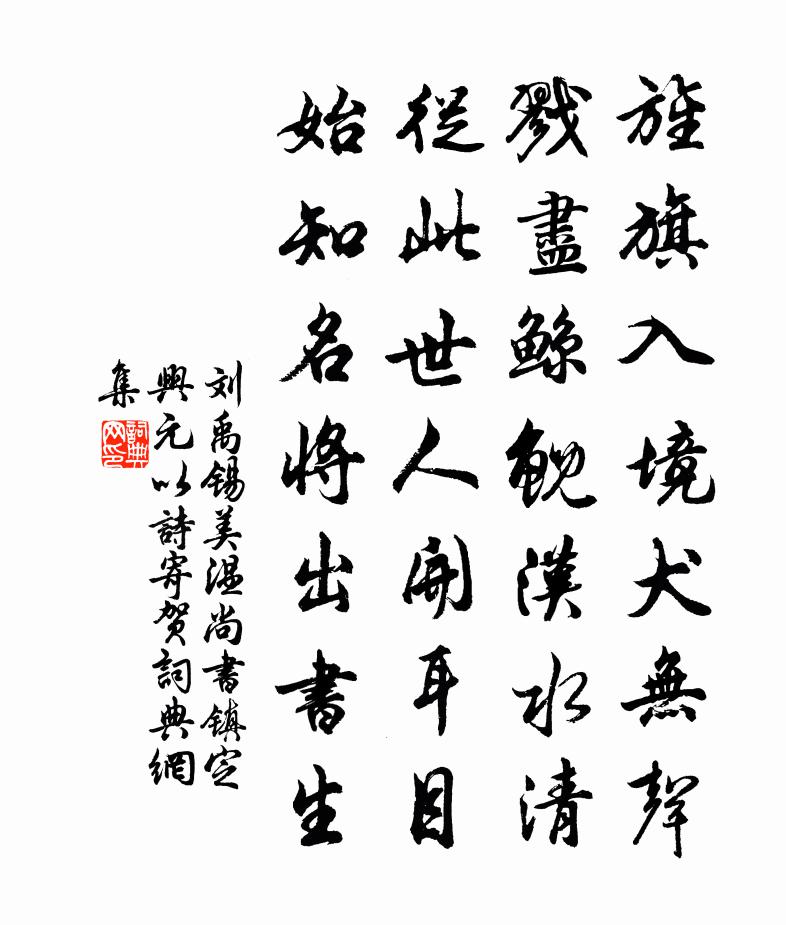 旌旗入境犬無聲
戮盡鯨鯢漢水清
從此世人開耳目
始知名將出書生
刘禹锡美温尚書鎮定
興元以詩寄贺詞典網
集
詞典
网印